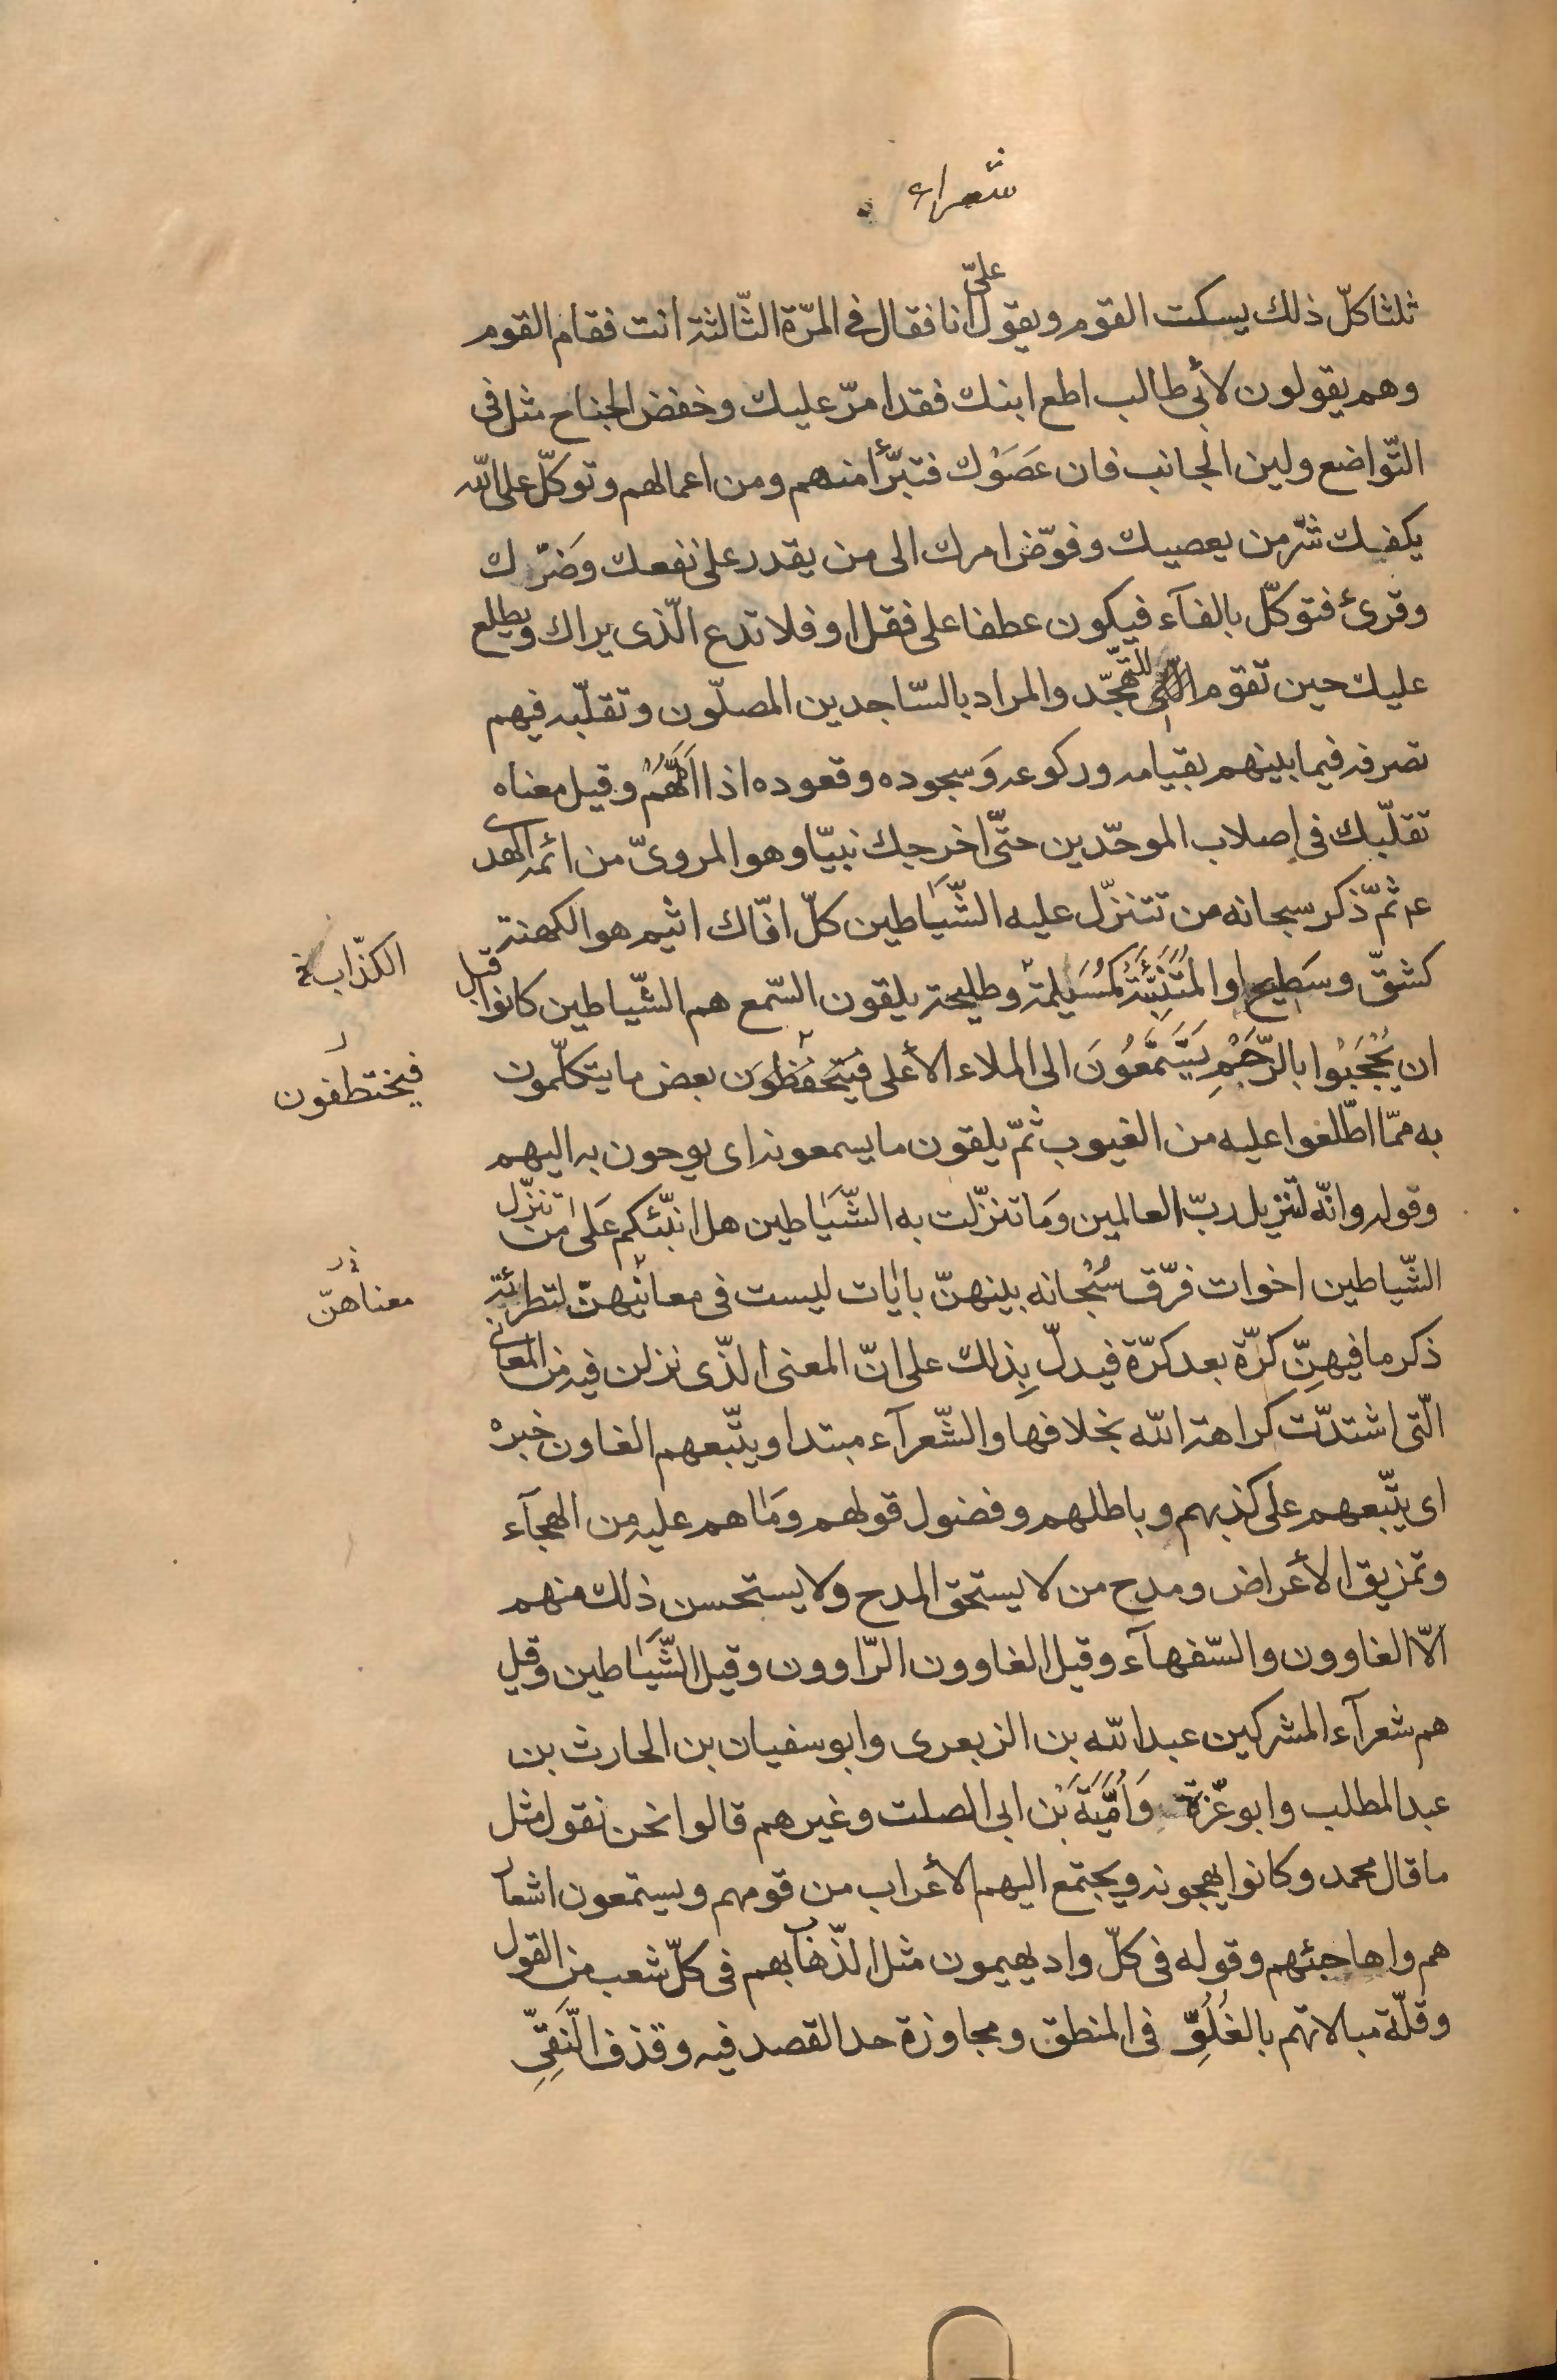 شعراء
علىّ
ثلثا كلّ ذلك يسكت القوم ويقول انا فقال فى المرّة الثّالثة انت فقام القوم
وهم يقولون لأبى طالب اطع ابنك فقد امرّ عليك وخفض الجناح مثل فى
التّواضع ولين الجانب فان عَصَوْك فتبرّأ منهم ومن اعمالهم وتوكّل على اللّه
يكفيك شرّ من يعصيك وفوّض امرك الى من يقدر على نفعك وضَرّك
وقرئ فتوكّل بالفآء فيكون عطفا على فقل او فلا تدع الّذى يراك ويطلع
عليك حين تقوم للتّهجّد والمراد بالسّاجدين المصلّون وتقلّبه فيهم
تصرفه فيما بينهم بقيامه وركوعه وَسجوده وقعوده اذا اَمَّهُمْ وقيل معناه
تقلّبك فى اصلاب الموحّدين حتّى اخرجك نبيّا وهو المروىّ من ائمة الهدى
ع ثمّ ذكر سبحانه من تتنزّل عليه الشّياطين كلّ افّاك اثيم هو الكهنة
الكذّابة
كشقّ وسَطِيح او المُتَنَبِّئَة كمُسَيلمة وطليحة يلقون السّمع هم الشّياطين كانوا قبل
ان يُحْجَبُوا بالرَّجْمِ يَتَسَمَّعُونَ الى الملاء الأعلى فَيَتَحَفَّظُونَ بعض ما يتكلّمون
فيختطفون
به ممّا اطّلعوا عليه من الغيوب ثمّ يلقون ما يسمعونه اى يوحون به اليهم
وقوله وانّه لتنزيل ربّ العالمين وَما تنزّلت به الشّياطين هل انبّئكم عَلى من تنزّل
الشّياطين اخوات فرّق سُبْحانه بينهنّ بايات ليست فى معانيهنّ لتطرئة
معناهنّ
ذكر ما فيهنّ كرّة بعد كرّة فيدلّ بِذلك على انّ المعنى الّذى نزلن فيه من المعانى
الّتى اشتدّت كراهة اللّه بخلافها والشّعرآء مبتدا ويتّبعهم الغاون خبره
اى يتّبعهم على كذبهم وباطلهم وفضول قولهم وَما هم عليه من الهجآء
وتمزيق الأعراض ومدح من لا يستحق المدح ولا يستحسن ذلك منهم
الّا الغاوون والسّفهآء وقيل الغاوون الرّاوون وقيل الشّياطين وقيل
هم شعرآء المشركين عبد اللّه بن الزبعرى وابو سفيان بن الحارث بن
عبد المطلب وابو عَزّة وَاُمَيَّةَ بْن ابى الصلت وغيرهم قالوا نحن نقول مثل
ما قال محمد وكانوا يهجونه ويجتمع اليهم الأعراب من قومهم ويستمعون اشعا
هم واهاجئهم وقوله فى كلّ واد يهيمون مثل لذّهابهم فى كلّ شعب من القول
وقلّة مبالاتهم بالغُلُوِّ فى المنطق ومجاوزة حد القصد فيه وقذف التَّقِىِّ